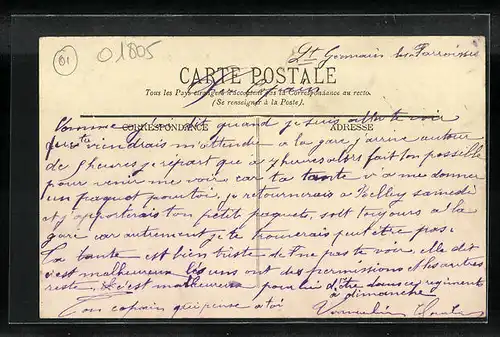 01
01805
St Germain les Paroisses
CARTE POSTALE
Tous les Pays étrangers n'acceptent pas la Correspondance au recto.
(Se renseigner à la Poste).
CORRESPONDANCE
ADRESSE
Comme je t'ai dit quand je suis allé te voir
que tu viendrais m'attendre à la gare j'arrive autour
de 5 heures je repart que a 7 heures alors fait ton possible
pour venir me voir car ta tante va me donner
un paquet pour toi, je retournerais à Belley samedi
et j'apporterais ton petit paquet, soit toujours à la
gare car autrement je te trouverais peut être pas.
Ta tante est bien triste de ne pas te voir, elle dit
c'est malheureux les uns ont des permissions et les autres
reste. c'est malheureux pour lui d'être dans ce régiment
à dimanche
Ton copain qui pense a toi